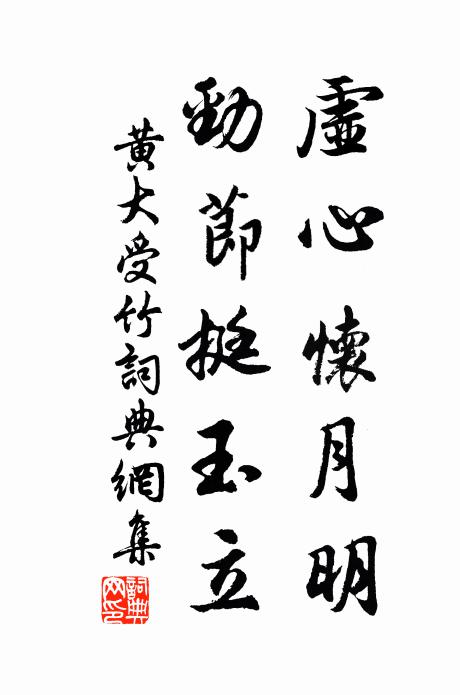 虛心懷月明
勁節挺玉立
黃大受竹詞典網集
詞典
网印